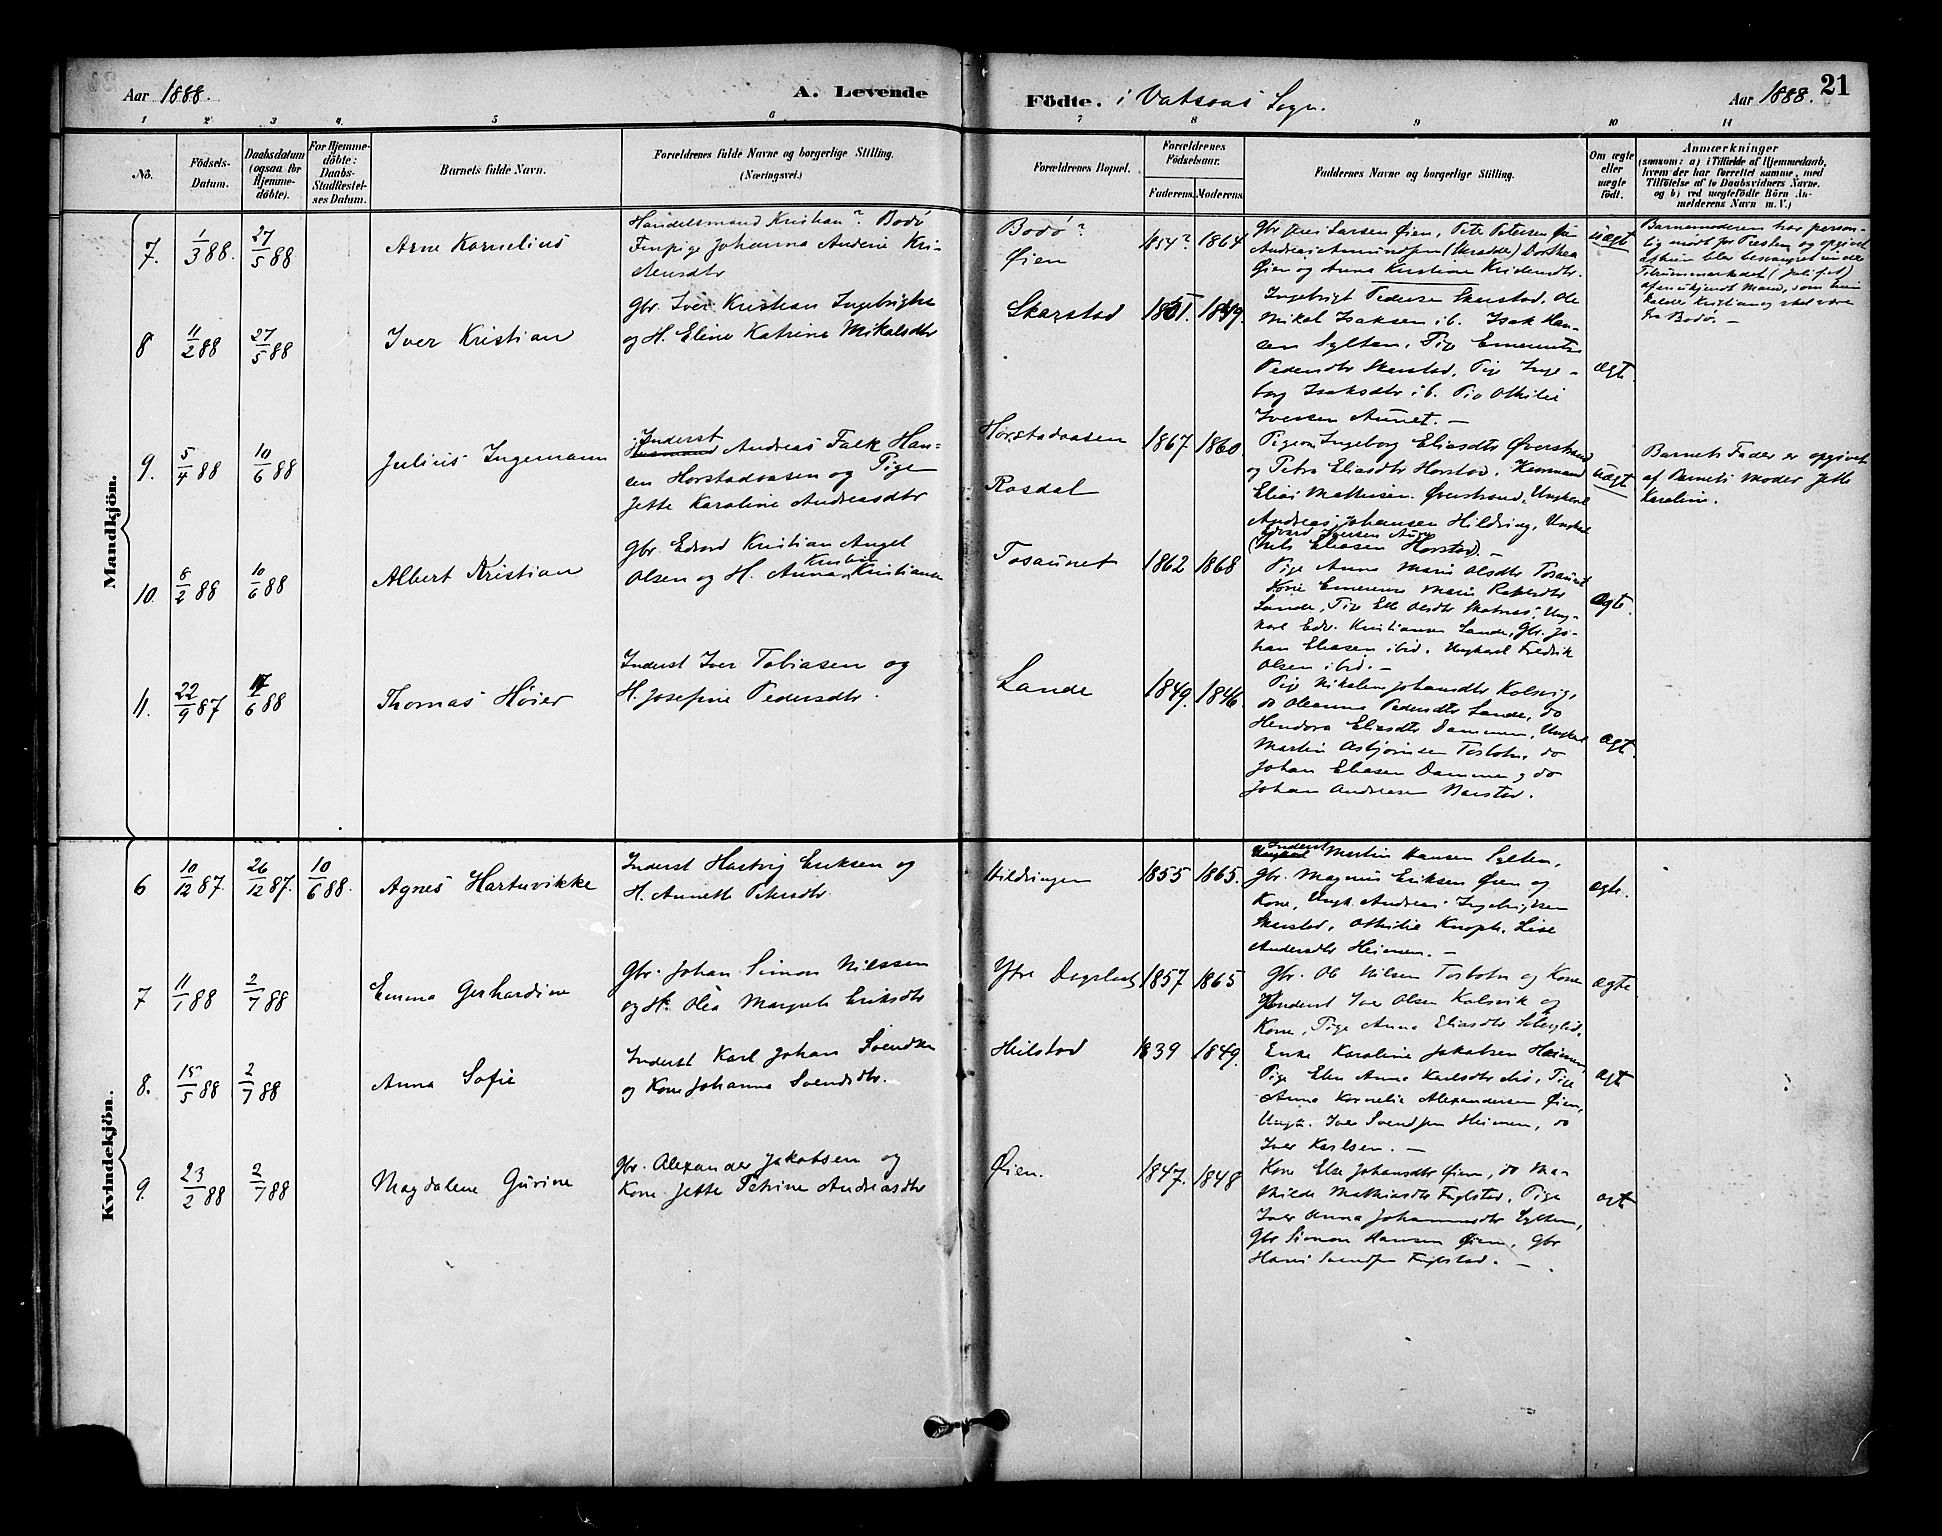 Aar 1888.
A. Levende
Födte. i Vatsaas Sogn.
Aar 1888.
21
1 2 3 4. 5 6 7 8 9 10 11
No.
Födsels-Datum.
Daabsdatum (ogsaa for Hjemmedöbte).
For Hjemmedöbte: Daabs-Stadfestelses Datum.
Barnets fulde Navn.
Forældrenes fulde Navne og borgerlige Stilling. (Næringsvei.)
Forældrenes Bopæl.
Forældrenes Födselsaar.
Faderens. Moderens.
Faddernes Navne og borgerlige Stilling.
Om ægte eller uægte födt.
Anmærkninger
(saasom: a) i Tilfælde af Hjemmedaab,
hvem der har forrettet samme, med
Tilföielse af to Daabsvidners Navne.
og b) ved uægtefödte Börn An-
melderens Navn m. V.)
Mandkjön.
7. 1/3 88. 27/5 88
Arne Kornelius
Handelsmand Kristian? Bodö
Finpige Johanna Andrine Kri-
stensdtr
Bodö?
Øien
1854? 1864
Gbr Larsen Øien, Peter Petersen
Andreas Amundsen Dorthea
Øien og Anna Kristine
uægt
Barnemoderen har person-
lig mödt for Presten og opgivet
at hun blev besvangret under
Tilrumsmarkedet
af en ukjendt Mand, som hun
kaldte Kristian og skal være
fra Bodö. —
8 11/2 88 27/5 88
Iver Kristian
Gbr. Iver Kristian Ingebrigtsen
og H. Eline Katrine Mikalsdtr
Skarstad
1851. 1849.
Ingebrigt Pedersen Skarstad, Ole
Mikal Isaksen i b. Isak Han-
sen Sylten, Pige
Pedersdtr Skarstad, Pige Inge-
borg Isaksdtr i b. Pige Othilie
Iversen Aunet. —
ægt.
9. 5/4 88 10/6 88
Julius Ingemann
Inderst
Andreas Falk Han-
sen Horstadaasen og Pige
Jette Karoline Andreasdtr
Horstadaasen
Rosdal
1867. 1860
Pigeon Ingeborg Eliasdtr Øverstrand
og Petra Eliasdtr Horstad,
Elias Mathisen Øverstrand, Ungkarl
Andreas Johansen Hildring, Ungkarl
Nils Eliasen Horstad. —
uægt
Barnets Fader er opgivet
af Barnets Moder Jette
Karoline.
10. 8/2 88 10/6 88
Albert Kristian
Gbr. Edvard Kristian Angel
Olsen og H. Anna Kristine Kristiansen
Tosaunet
1862 1868
Pige Anne Marie Olsdtr Tosaunet
Kone Marie
Lande, Pige Ele Olsdtr Skotnes, Ung-
karl Edv. Kristiansen Lande, Gbr. Jo-
han Eliasen ibid. Ungkarl Fredrik
Olsen ibid. —
ægte.
11. 22/9 87 17/6 88
Thomas Høier
Inderst Iver Tobiasen og
H. Josefine Pedersdtr.
Lande
1849. 1846.
Pige Nikoline Johansdtr Kolsvig,
do Oleanna Pedersdtr Lande, do
Hendora Eliasdtr Dammen, Ungkarl
Martin Asbjörnsen Tosbotn, do
Johan Eliasen Dammen, do
Johan Andreasen Barstad.
ægt.
Kvindekjön.
6 10/12 87. 26/12 87. 10/6 88.
Agnes Hartuvikke
Inderst Hartvig Eriksen og
H. Annette Petersdtr.
Hildringen
1855 1865.
Inderst
Martin Hansen Sylten,
Gbr. Magnus Eriksen Øien og
Kone, Ungk. Andreas Ingebrigtsen
Skarstad, Othilie Knoph. Lise
Andersdtr Heimen. —
ægte.
7 11/1 88 2/7 88
Emma Gerhardine
Gbr. Johan Simon Nilssen
og H. Olea Margrete Eriksdtr
Ytre
1857 1865
Gbr. Ole Nilsen Tosbotn og Kone
Inderst Iver Olsen Kolsvik og
Kone, Pige Anna Eliasdtr
ægte
8. 15/5 88 2/7 88
Anna Sofie
Inderst Karl Johan Svendsen
og Kone Johanna Svendsdtr.
Heilstad
1839 1849.
Enke Karoline Jakobsen Heimen,
Pige Elen Anna Karlsdtr ibid, Pige
Anna Kornelia Alexandersen Øien,
Ungk. Iver Svendsen Heimen, do
Iver Karlsen. —
ægt
9. 23/2 88 2/7 88
Magdalene Gurine
Gbr. Alexander Jakobsen og
Kone Jette Petrine Andreasdtr
Øien.
1847. 1848
Kone Elen Johansdtr Øien, do Ma-
thilde Mathiasdtr Fuglstad, Pige
Iver Anna Johannesdtr Sylten,
Gbr Simon Hansen Øien, Gbr
Hans Svendsen Fuglstad. —
ægt